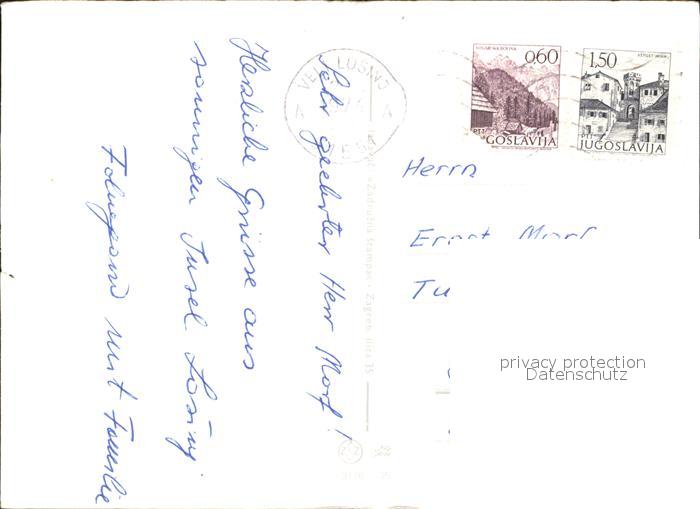 Sehr geehrter Herr Morf!
Herzliche Grüsse aus
sonnigen Insel Lošinj
mit Familie
VELI LOŠINJ
A A
«Zadružna štampa» - Zagreb, Ilica 35
0.60
PTT
JUGOSLAVIJA
1.50
PTT
JUGOSLAVIJA
Herrn
Ernst Morf
Tu
privacy protection
Datenschutz